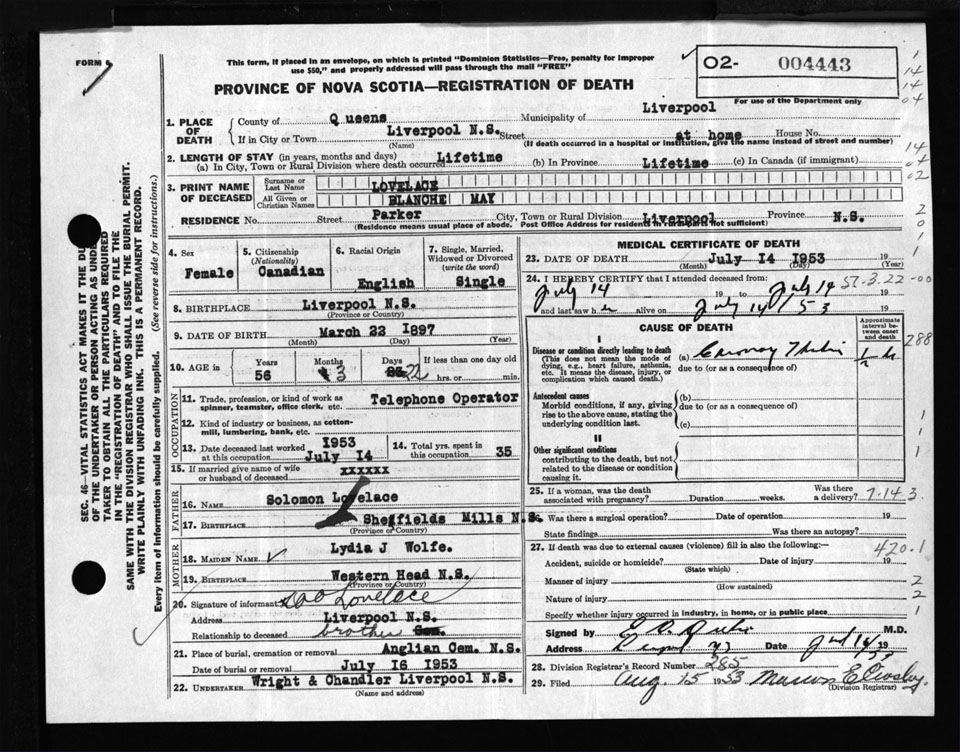 FORM 6
This form, if placed in an envelope, on which is printed "Dominion Statistics—Free, penalty for improper
use $50," and properly addressed will pass through the mail "FREE"
PROVINCE OF NOVA SCOTIA—REGISTRATION OF DEATH
O2- 004443
For use of the Department only
1. PLACE OF DEATH
County of Queens Municipality of Liverpool
If in City or Town Liverpool N.S. Street at home House No.
(Name) (If death occurred in a hospital or institution, give the name instead of street and number)
2. LENGTH OF STAY (in years, months and days)
(a) In City, Town or Rural Division where death occurred Lifetime (b) In Province Lifetime (c) In Canada (if immigrant)
3. PRINT NAME OF DECEASED
Surname or Last Name LOVELACE
All Given or Christian Names BLANCHE MAY
RESIDENCE No. Street Parker City, Town or Rural Division Liverpool Province N.S.
(Residence means usual place of abode. Post Office Address for residents in rural parts not sufficient)
4. Sex Female
5. Citizenship (Nationality) Canadian
6. Racial Origin English
7. Single, Married, Widowed or Divorced (write the word) Single
8. BIRTHPLACE Liverpool N.S.
(Province or Country)
9. DATE OF BIRTH March 22 1897
(Month) (Day) (Year)
10. AGE in Years 56 Months 3 Days 22 If less than one day old hrs. or min.
OCCUPATION
11. Trade, profession, or kind of work as spinner, teamster, office clerk, etc. Telephone Operator
12. Kind of industry or business, as cotton-mill, lumbering, bank, etc.
13. Date deceased last worked at this occupation July 14 1953
14. Total yrs. spent in this occupation 35
15. If married give name of wife or husband of deceased xxxxxx
FATHER
16. NAME Solomon Lovelace
17. BIRTHPLACE Sheffields Mills N.S.
(Province or Country)
MOTHER
18. MAIDEN NAME Lydia J Wolfe.
19. BIRTHPLACE Western Head N.S.
(Province or Country)
20. Signature of informant Lovelace
Address Liverpool N.S.
Relationship to deceased brother Son.
21. Place of burial, cremation or removal Anglian Cem. N.S.
Date of burial or removal July 16 1953
22. UNDERTAKER Wright & Chandler Liverpool N.S.
(Name and address)
MEDICAL CERTIFICATE OF DEATH
23. DATE OF DEATH July 14 1953
(Month) (Day) (Year)
24. I HEREBY CERTIFY that I attended deceased from:
July 14 19 to July 14 19
57-3-22-00
and last saw h alive on July 14/53 19
CAUSE OF DEATH
Approximate interval between onset and death
I
Disease or condition directly leading to death
(This does not mean the mode of dying, e.g., heart failure, asthenia, etc. It means the disease, injury, or complication which caused death.)
(a)
due to (or as a consequence of)
Antecedent causes
Morbid conditions, if any, giving rise to the above cause, stating the underlying condition last.
(b)
due to (or as a consequence of)
(c)
II
Other significant conditions
contributing to the death, but not related to the disease or condition causing it.
25. If a woman, was the death associated with pregnancy? Duration weeks. Was there a delivery?
7-14-3
26. Was there a surgical operation? Date of operation 19
State findings Was there an autopsy?
27. If death was due to external causes (violence) fill in also the following:
420.1
Accident, suicide or homicide? Date of injury 19
(State which)
Manner of injury
(How sustained)
Nature of injury
Specify whether injury occurred in industry, in home, or in public place
Signed by M.D.
Address Date 19
28. Division Registrar's Record Number 285
29. Filed Aug. 15 1953
(Division Registrar)
SEC. 46—VITAL STATISTICS ACT MAKES IT THE DUTY
OF THE UNDERTAKER OR PERSON ACTING AS UNDER-
TAKER TO OBTAIN ALL THE PARTICULARS REQUIRED
IN THE "REGISTRATION OF DEATH" AND TO FILE THE
SAME WITH THE DIVISION REGISTRAR WHO SHALL ISSUE THE BURIAL PERMIT.
WRITE PLAINLY WITH UNFADING INK. THIS IS A PERMANENT RECORD.
Every item of information should be carefully supplied. (See reverse side for instructions.)
1
14
14
04
14
04
02
2
0
1
1
288
1
1
1
2
2
1